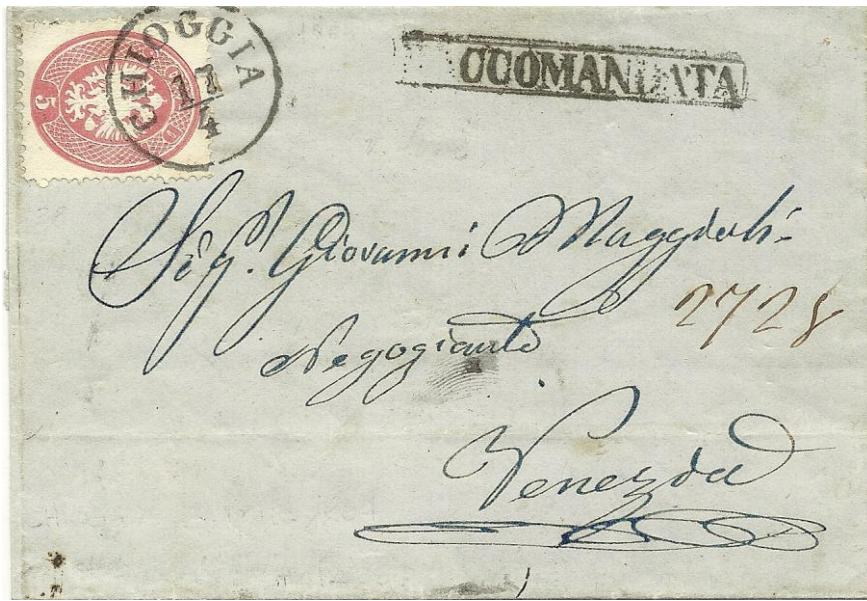 CHIOGGIA
11
4
5
CCOMANDATA
Sigr. Giovanni
2728
Negoziante
Venezia